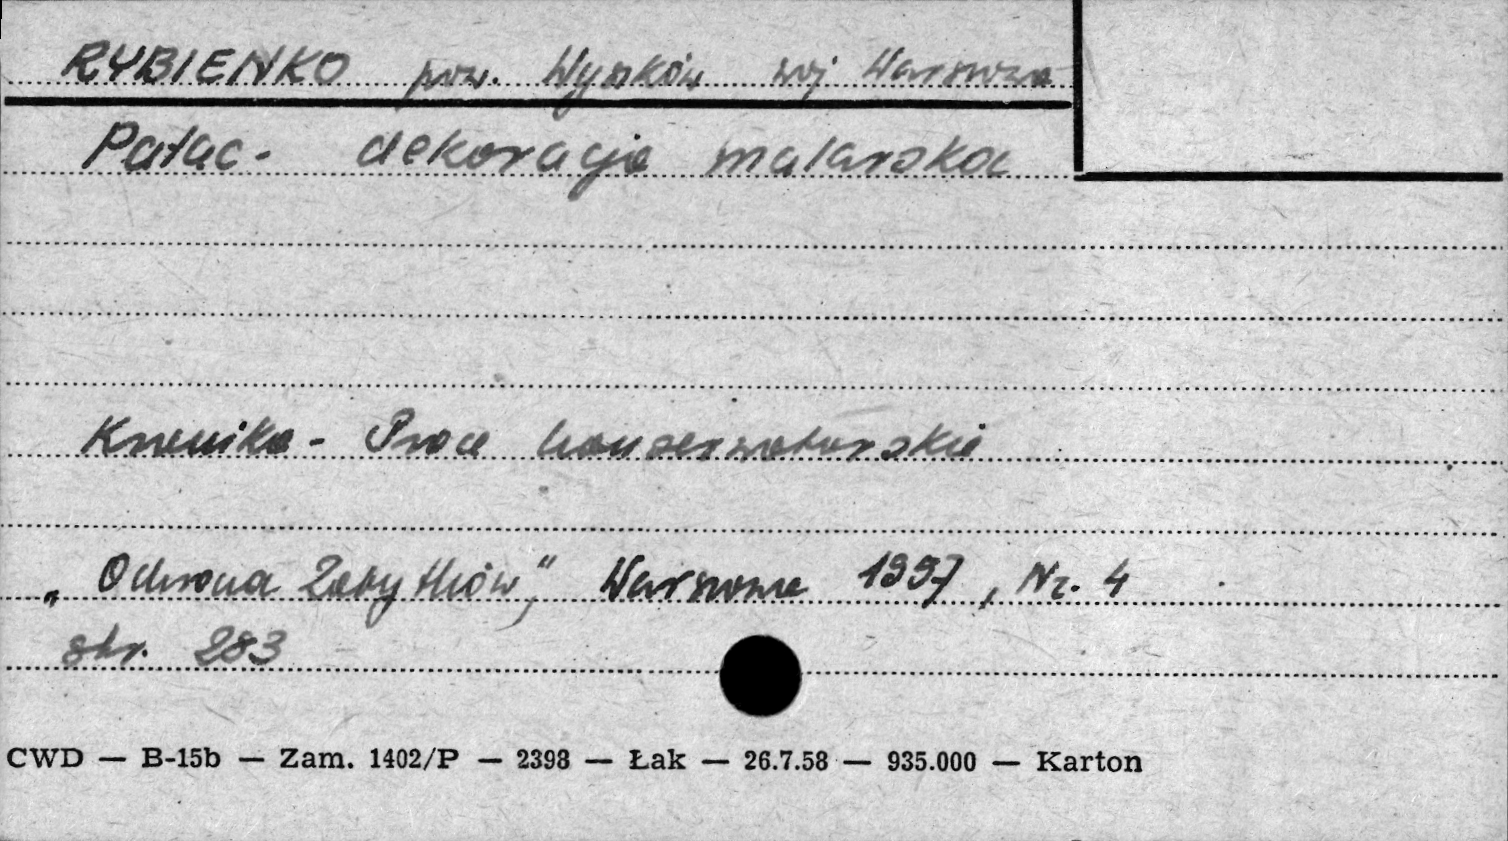 RYBIENKO pow. Wyszków woj Warszawa
Pałac - dekoracja malarska
Kronika - Prace konserwatorskie
„Ochrona Zabytków", Warszawa 1957, Nr. 4
str. 283
CWD — B-15b — Zam. 1402/P — 2398 — Łak — 26.7.58 — 935.000 — Karton